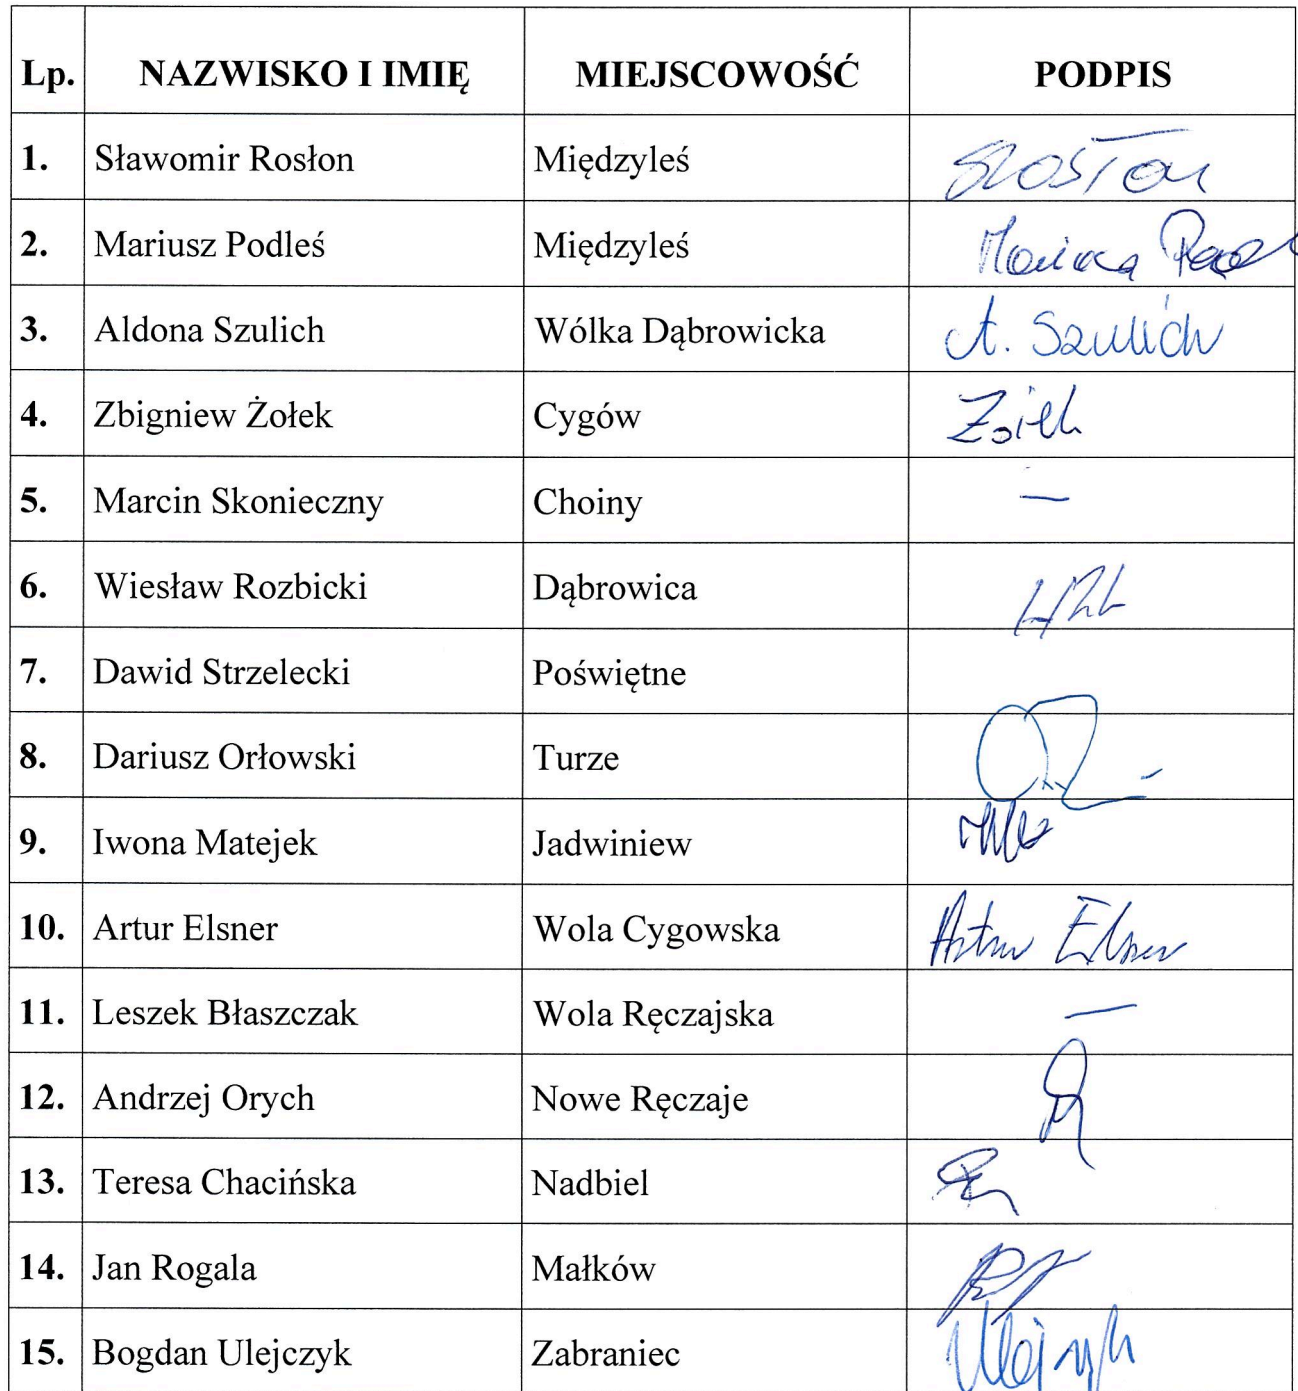 Lp. NAZWISKO I IMIĘ MIEJSCOWOŚĆ PODPIS
1. Sławomir Rosłon Międzyleś
2. Mariusz Podleś Międzyleś
3. Aldona Szulich Wólka Dąbrowicka A. Szulich
4. Zbigniew Żołek Cygów
5. Marcin Skonieczny Choiny —
6. Wiesław Rozbicki Dąbrowica
7. Dawid Strzelecki Poświętne
8. Dariusz Orłowski Turze
9. Iwona Matejek Jadwiniew
10. Artur Elsner Wola Cygowska Artur Elsner
11. Leszek Błaszczak Wola Ręczajska —
12. Andrzej Orych Nowe Ręczaje
13. Teresa Chacińska Nadbiel
14. Jan Rogala Małków
15. Bogdan Ulejczyk Zabraniec Ulejczyk